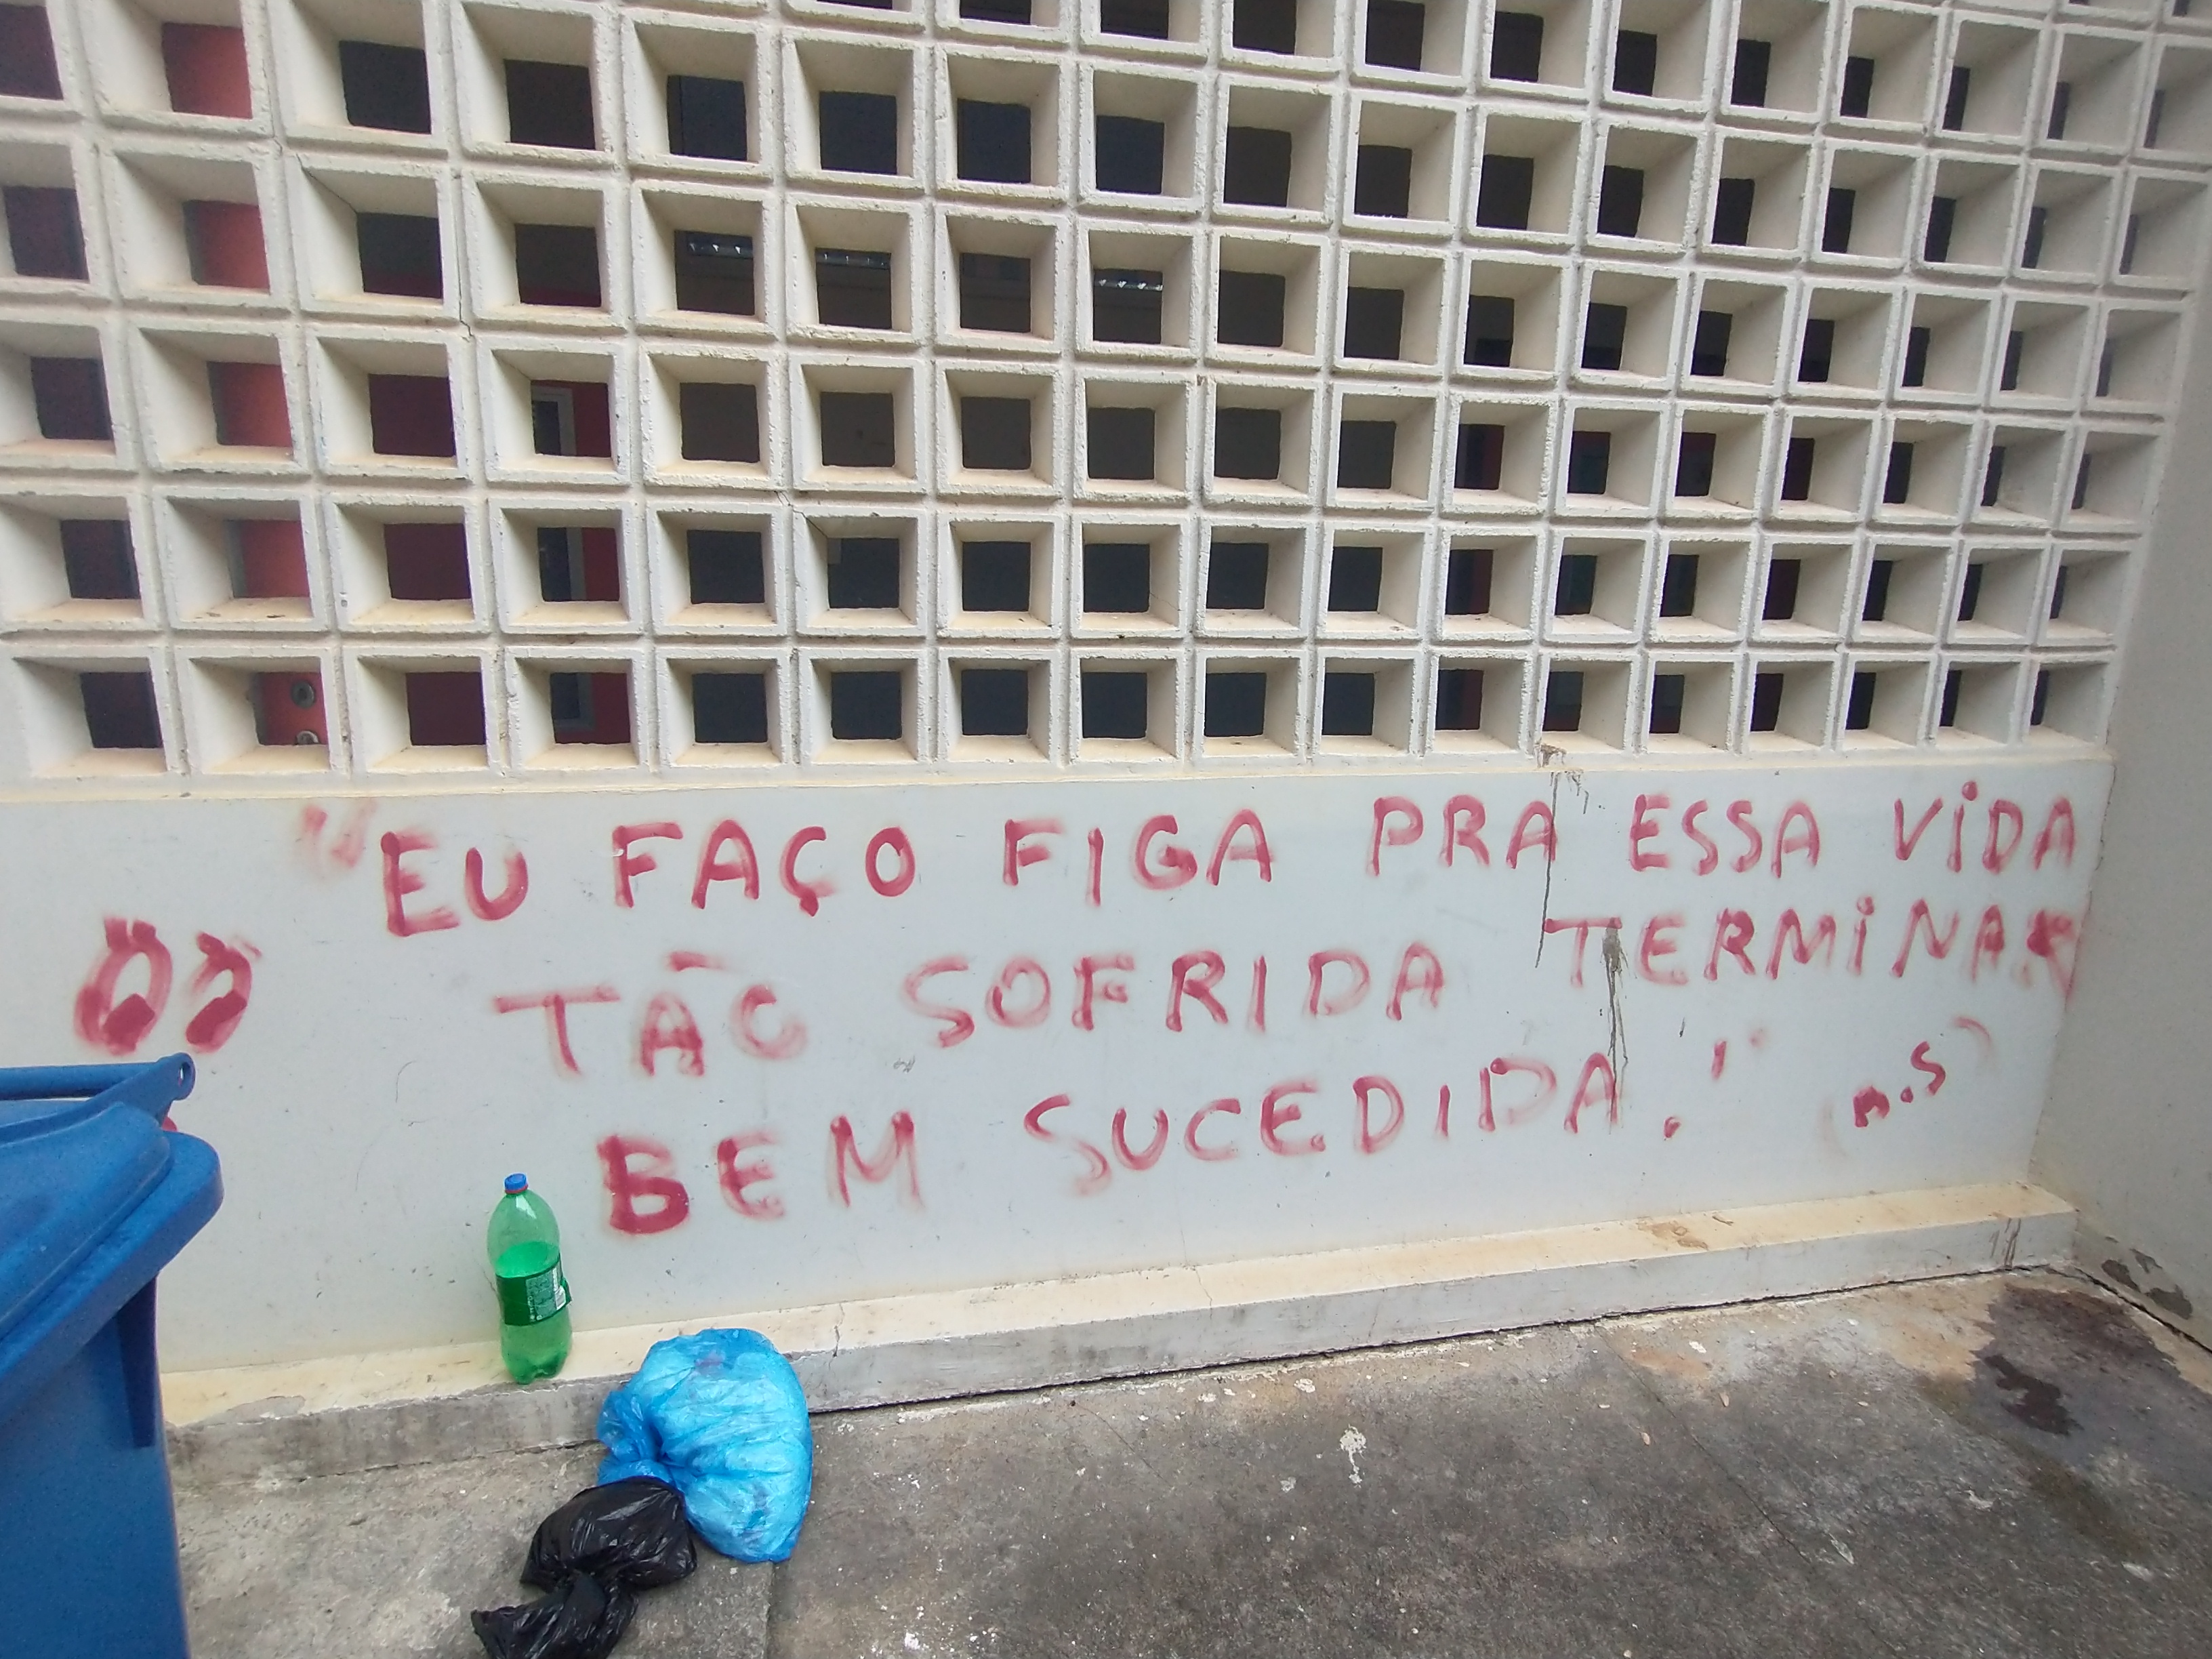 "EU FAÇO FIGA PRA ESSA VIDA
TÃO SOFRIDA TERMINAR
BEM SUCEDIDA!"